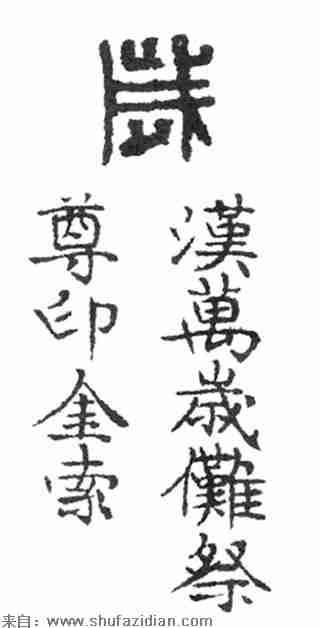 歲
漢萬歲儺祭
尊印金索
来自：www.shufazidian.com